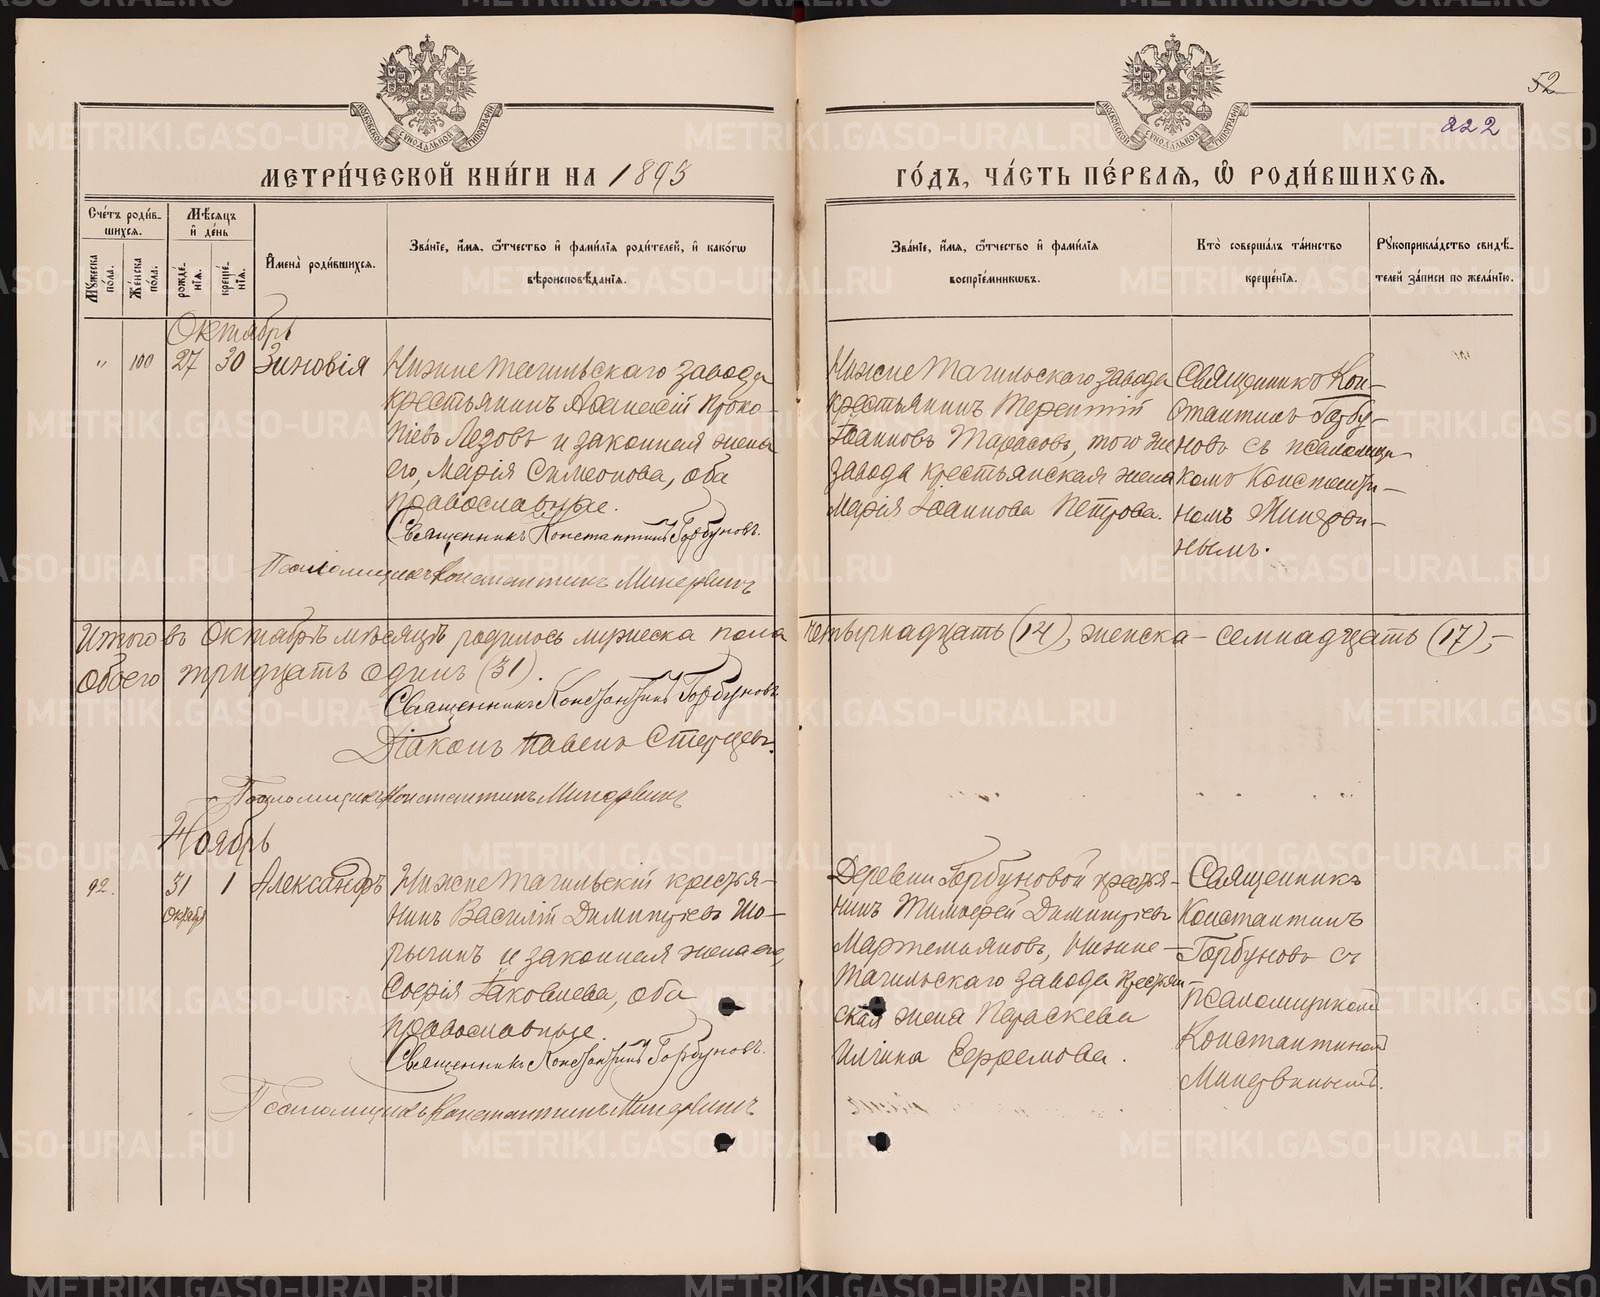 52
222
МЕТРИ́ЧЕСКОЙ КНИ́ГИ НА 1895
ГО́ДЪ, ЧА́СТЬ ПЕ́РВАѦ, Ѡ҆ РОДИ́ВШИХСѦ.
Сче́тъ роди́в-
шихсѧ.
Мꙋжеска по́ла.
Же́нска по́ла.
Мѣ́сѧцъ и҆ де́нь
рожде́-
нїѧ.
креще́-
нїѧ.
И҆мена̀ роди́вшихсѧ.
Зва́нїе, и҆́мѧ, ѻ҆́тчество и҆ фами́лїѧ роди́телей, и҆ како́гѡ
вѣроисповѣ́данїѧ.
Зва́нїе, и҆́мѧ, ѻ҆́тчество и҆ фами́лїѧ
воспрїе́мникѡвъ.
Кто̀ соверша́лъ та́инство
креще́нїѧ.
Рꙋкоприкла́дство свидѣ́-
телей за́писи по жела́нїю.
Октябрь
" 100 27 30 Зиновія
Нижнетагильскаго завода
крестьянинъ Аѳанасій Проко-
піевъ Лезовъ и законная жена
его, Марія Симеонова, оба
православные.
Священникъ Константинъ Горбуновъ.
Псаломщикъ Константинъ Минервинъ
Нижнетагильскаго завода
крестьянинъ Терентій
Іоанновъ Тарасовъ, того же
завода крестьянская жена
Марія Іоаннова Петрова.
Священникъ Кон-
стантинъ Горбу-
новъ съ псаломщи-
комъ Константи-
номъ Минерви-
нымъ.
Итого въ Октябрѣ мѣсяцѣ родилось мужеска пола четырнадцать (14), женска - семнадцать (17),-
обоего тридцать одинъ (31).
Священникъ Константинъ Горбуновъ
Діаконъ Павелъ Стерцевъ.
Псаломщикъ Константинъ Минервинъ
Ноябрь
92. 31 Октября 1 Александръ
Нижнетагильскій крестья-
нинъ Василій Димитріевъ Шо-
рыгинъ и законная жена его,
Софія Іаковлева, оба
православные.
Священникъ Константинъ Горбуновъ.
Псаломщикъ Константинъ Минервинъ
Деревни Горбуновой крестья-
нинъ Тимоѳей Димитріевъ
Мартемьяновъ, Нижне-
тагильскаго завода крестьян-
ская жена Параскева
Ильина Ефремова.
Священникъ
Константинъ
Горбуновъ съ
псаломщикомъ
Константиномъ
Минервинымъ.
METRIKI.GASO-URAL.RU